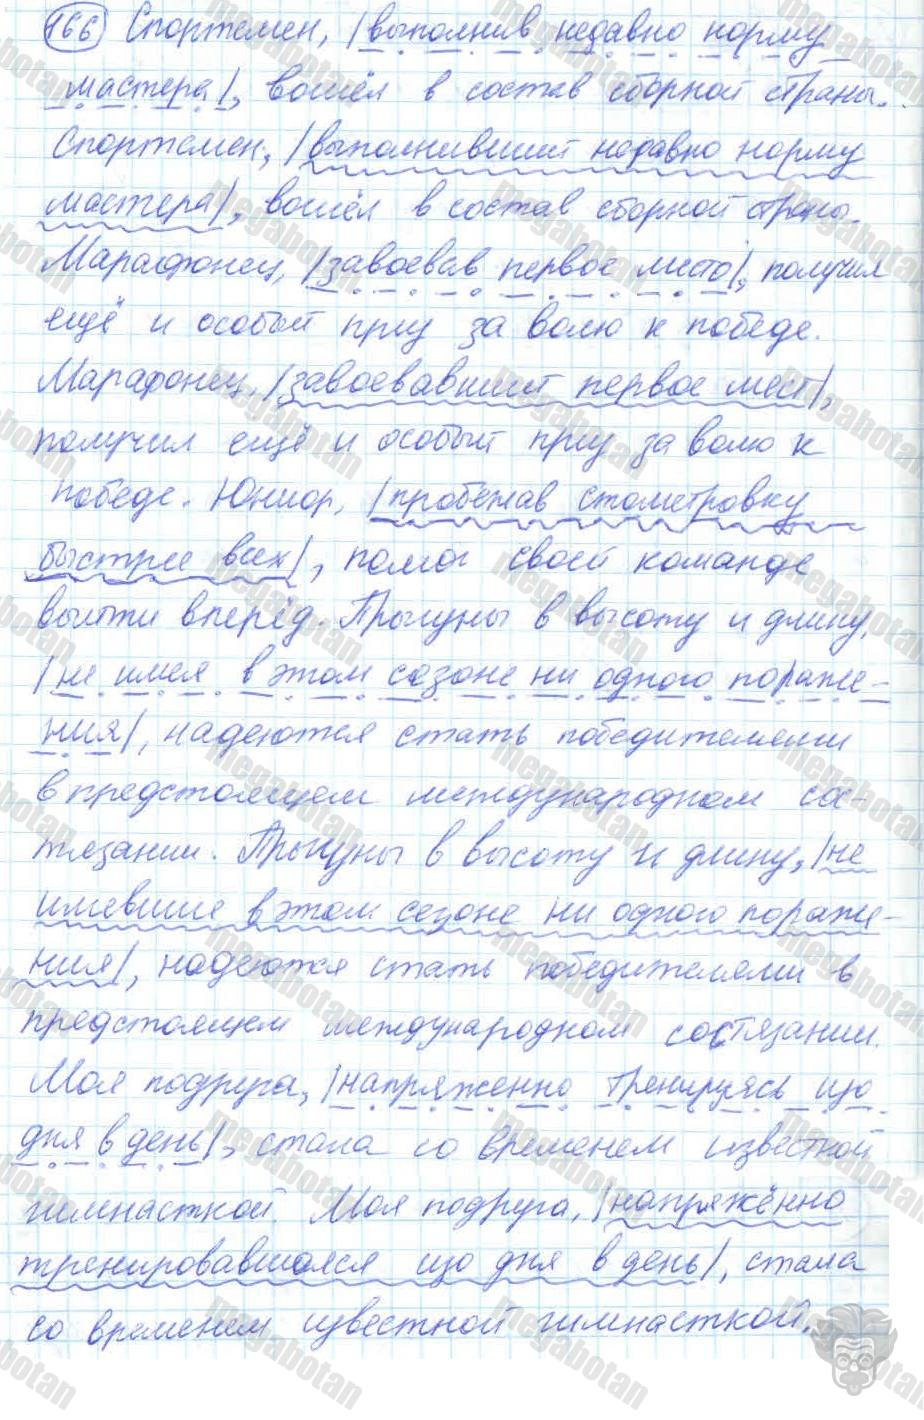 166 Спортсмен, |выполнив недавно норму
мастера|, вошёл в состав сборной страны.
Спортсмен, |выполнивший недавно норму
мастера|, вошёл в состав сборной страны.
Марафонец, |завоевав первое место|, получил
ещё и особый приз за волю к победе.
Марафонец, |завоевавший первое мест|,
получил ещё и особый приз за волю к
победе. Юниор, |пробежав стометровку
быстрее всех|, помог своей команде
выйти вперёд. Прыгуны в высоту и длину,
|не имея в этом сезоне ни одного пораже-
ния|, надеются стать победителями
в предстоящем международном сос-
тязании. Прыгуны в высоту и длину, |не
имевшие в этом сезоне ни одного пораже-
ния|, надеются стать победителями в
предстоящем международном состязании.
Моя подруга, |напряженно тренируясь изо
дня в день|, стала со временем известной
гимнасткой. Моя подруга, |напряжённо
тренировавшаяся изо дня в день|, стала
со временем известной гимнасткой.
megabotan